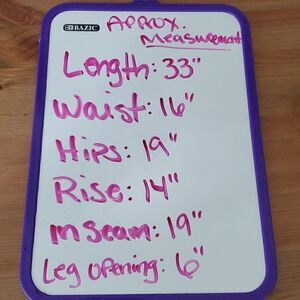 BAZIC
Approx.
Measurement
Length: 33"
Waist: 16"
Hips: 19"
Rise: 14"
Inseam: 19"
Leg opening: 6"